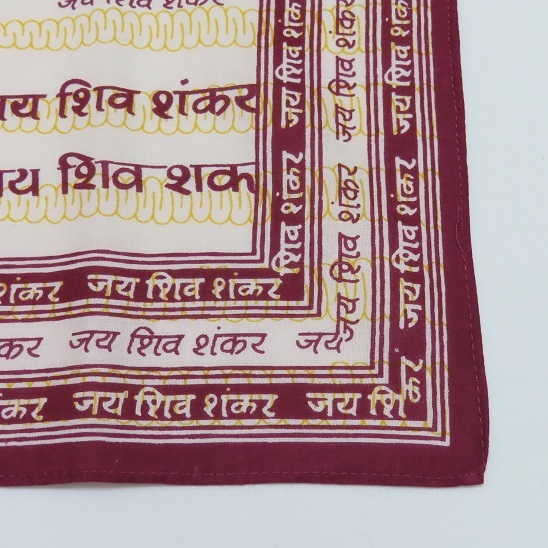 जय शिव शंकर
जय शिव शंकर
जय शिव शकर
शंकर जय शिव शंकर
शंकर जय शिव शंकर जय
शंकर जय शिव शंकर जय शि
शिव शंकर जय शिव शंकर
जय शिव शंकर जय शिव शंकर
जय शिव शंकर जय शिव शंकर